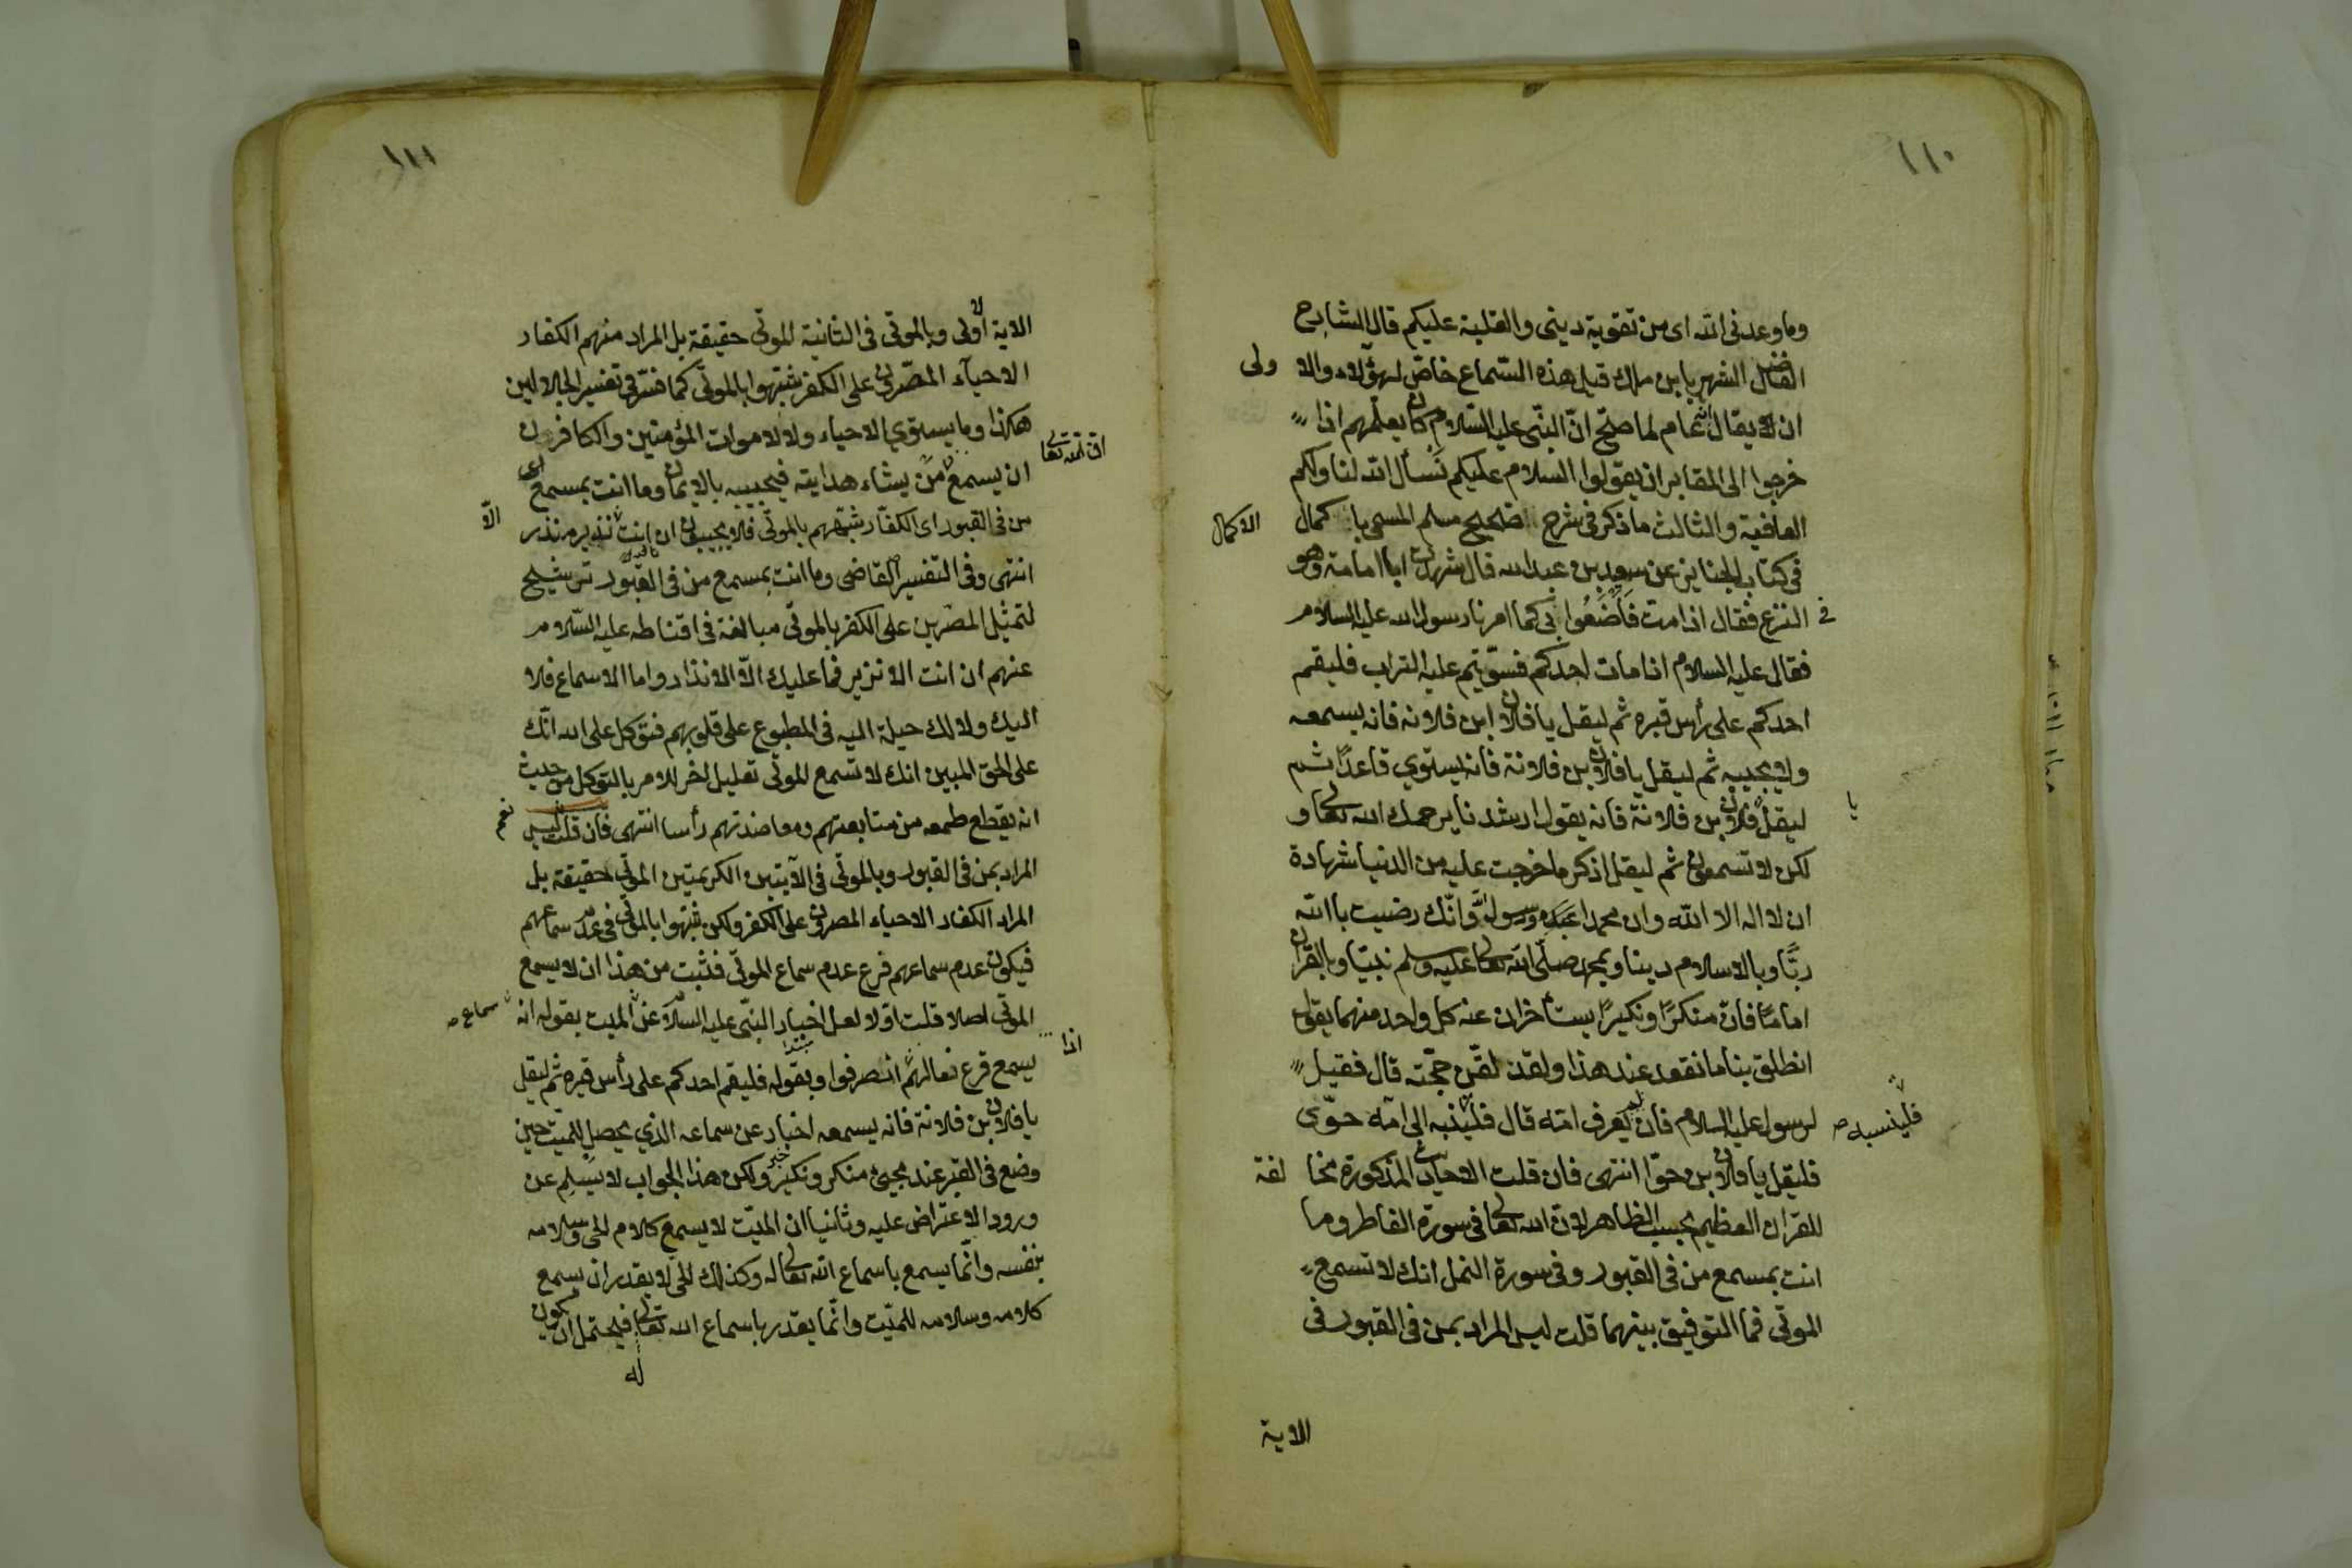 ١١٠
وما وعدنی الله ای من تقویة دینی والغلبة علیکم قال الشارح
الفاضل الشهیر بابن ملك قیل هذه السّماع خاصّ لهؤلاء والا ولی
ان لا یقال انّه عام لما صحّ انّ النّبی علیه السّلام کان یعلّمهم اذا
خرجوا الی المقابر ان یقولوا السلام علیکم نَسأل الله لنا ولکم
العافیة والثالث ما ذکر فی شرح صحیح مسلم المسمی با کمال الاکمال
فی کتاب الجنایز عن سعید بن عبد الله قال شهدت ابا امامة وهو
فی النزع فقال اذا مت فَاَضْنَعُوا بی کما امرنا رسول الله علیه السلام
فقال علیه السلام اذا مات احدکم فسوّیتم علیه التراب فلیقم
احدکم علی رأس قبره ثم لیقل یا فلان ابن فلانة فانه یسمعه
ولا یجیبه ثم لیقل یا فلان بن فلانة فانه یستوی قاعداً ثم
لیقل یا فلان بن فلانة فانه یقول ارشدنا یرحمك الله تعالی و
لکن لا تسمعون ثم لیقل اذکر ما خرجت علیه من الدنیا شهادة
ان لا اله الا الله وان محمدا عبده ورسوله وانّك رضیت باالله
ربّا وبالاسلام دینا وبمحمد صلّی الله تعالی علیه وسلم نبیّا وبالقران
اماماً فانّ منکرًا ونکیرًا یستأخران عنه کل واحد منهما یقول
انطلق بنا ما نقعد عند هذا ولقد لقّن حجّته قال فقیل
لرسول علیه السلام فان لم یعرف امّه قال فلینسبه الی امّه حوّی
فلینسبه صح
فلیقل یا فلان بن حوّا انتهی فان قلت الاحادیث المذکورة مخا لفة
للقران العظیم بحسب الظاهر لانّ الله تعالی فی سورة الفاطر وما
انت بمسمع من فی القبور وفی سورة النمل انك لا تسمع
الموتی فما التوفیق بینهما قلت لیس المراد بمن فی القبور فی
الایة
١١١
الایة الاولی وبالموتی فی الثانیة الموتی حقیقة بل المراد منهم الکفار
الاحیآء المصّرین علی الکفر شبّهوا بالموتی کما فسّر فی تفسیر الجلالین
هکذا وما یستوی الاحیاء ولا الاموات المؤمنین والکافرون
انّ الله تعالی
ان یسمع من یشاء هدایته فیجیبه بالایمان وما انت بمسمع ای
من فی القبور ای الکفّار شبّههم بالموتی فلا یجیبون ان انت الّا نذیر منذر
انتهی وفی التفسیر القاضی وما انت بمسمع من فی القبور ترشیح
لتمثیل المصرین علی الکفر بالموتی مبالغة فی اقناطه علیه السّلام
عنهم ان انت الا نذیر فما علیك الّا الانذار واما الاسماع فلا
الیك ولا لك حیلة الیه فی المطبوع علی قلوبهم فتوکل علی الله انّك
علی الحق المبین انك لا تسمع الموتی تعلیل اخر للامر بالتوکل من حیث
انه یقطع طمعه من متابعتهم ومعاضدتهم رأسا انتهی فان قلت لیس نعم
المراد بمن فی القبور وبالموتی فی الآیتین الکریمتین الموتی حقیقة بل
المراد الکفار الاحیاء المصرین علی الکفر ولکن شبّهوا بالموتی فی عدم سماعهم
فیکون عدم سماعهم فرع عدم سماع الموتی فثبت من هذا ان لا یسمع
الموتی اصلا قلت اوّلا لعل اخبار النبّی علیه السّلام عن سماع المیت بقوله انه
یسمع قرع نعالهم اذا انصرفوا وبقوله فلیقم احدکم علی رأس قبره ثم لیقل
مبتدا
یا فلان بن فلانة فانه یسمعه اخبار عن سماعه الذی یحصل للمیّت حین
وضع فی القبر عند مجیئ منکر ونکیر خبر ولکن هذا الجواب لا یسلم عن
ورود الاعتراض علیه وثانیا ان المیّت لا یسمع کلام الحی وسلامه
بنفسه وانّما یسمع باسماع الله تعالی له وکذلك الحی لا یقدر ان یسمع
کلامه وسلامه للمیّت وانّما یقدر باسماع الله تعالی له فیحتمل ان یکون